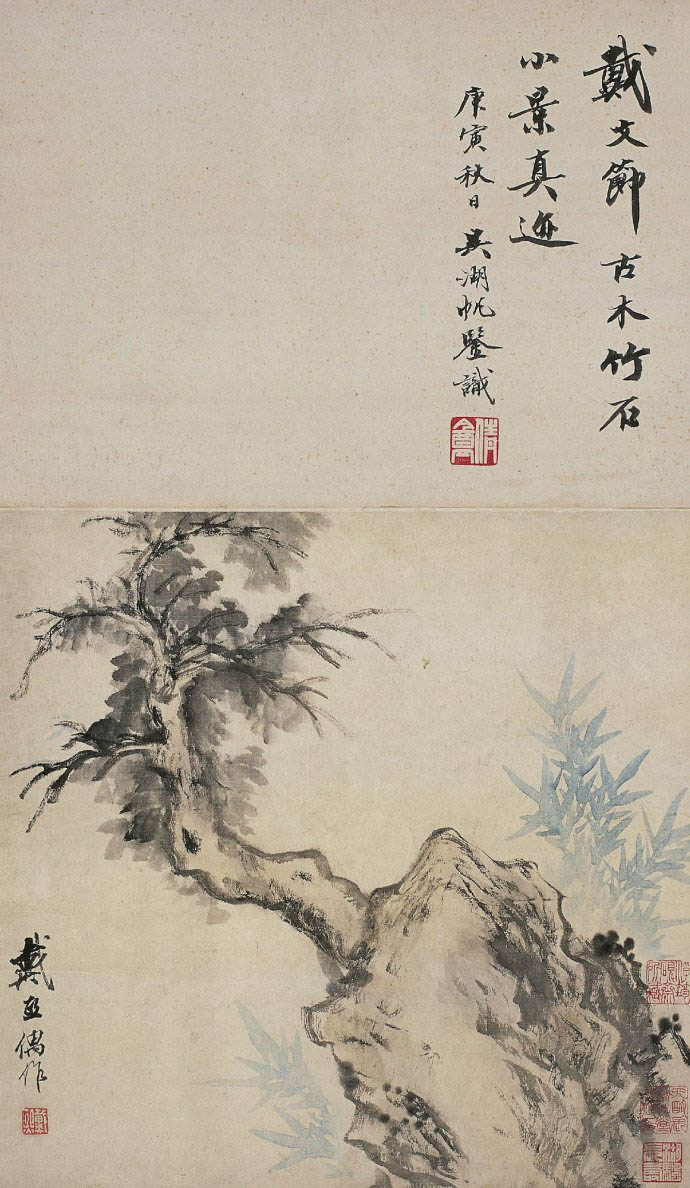 戴文節古木竹石
小景真迹
庚寅秋日吳湖帆鑒識
倩盦
戴熙偶作